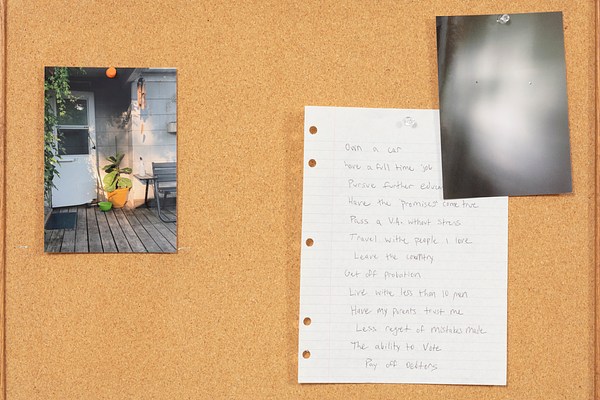 Own a car
have a full time job
Pursue further educa
Have the promises come true
Pass a U.A. without stress
Travel withe people i love
Leave the country
Get off probation
Live withe less than 10 men
Have my parents trust me
Less regret of mistakes made
The ability to vote
Pay off Debters